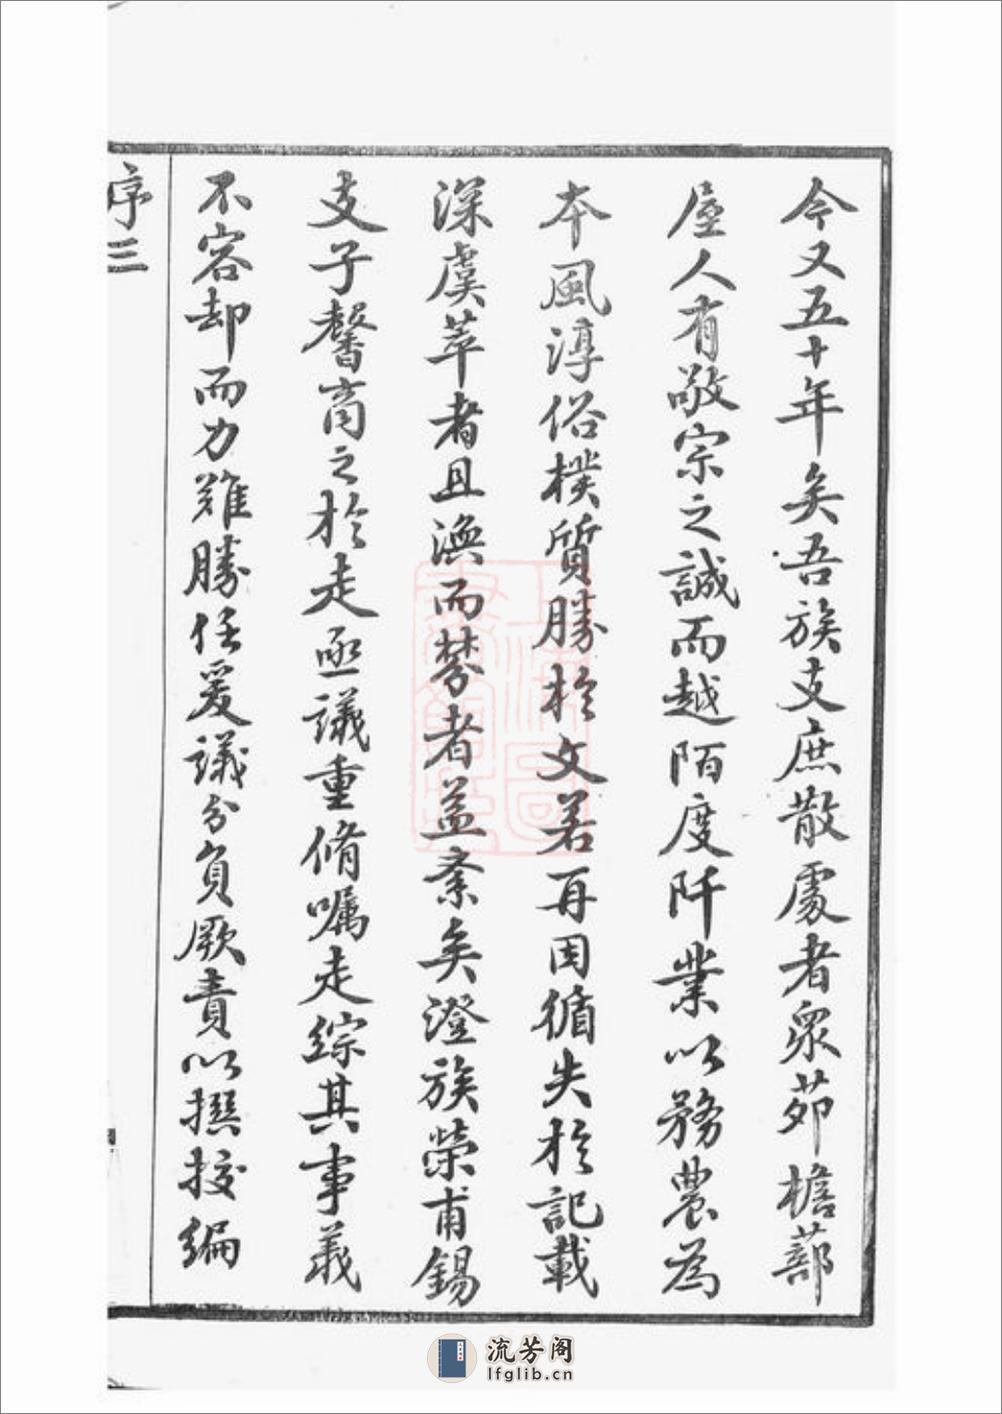 今又五十年矣吾族支庶散處者衆茆檐蔀
屋人有敬宗之誠而越陌度阡業以務農為
本風淳俗樸質勝於文若再因循失於記載
深虞萃者且渙而棼者益紊矣澄族榮甫錫
支子馨商之於走亟議重脩囑走綜其事義
不容却而力難勝任爰議分負厥責以撰校編
序三
上海圖書館藏
流芳阁
lfglib.cn